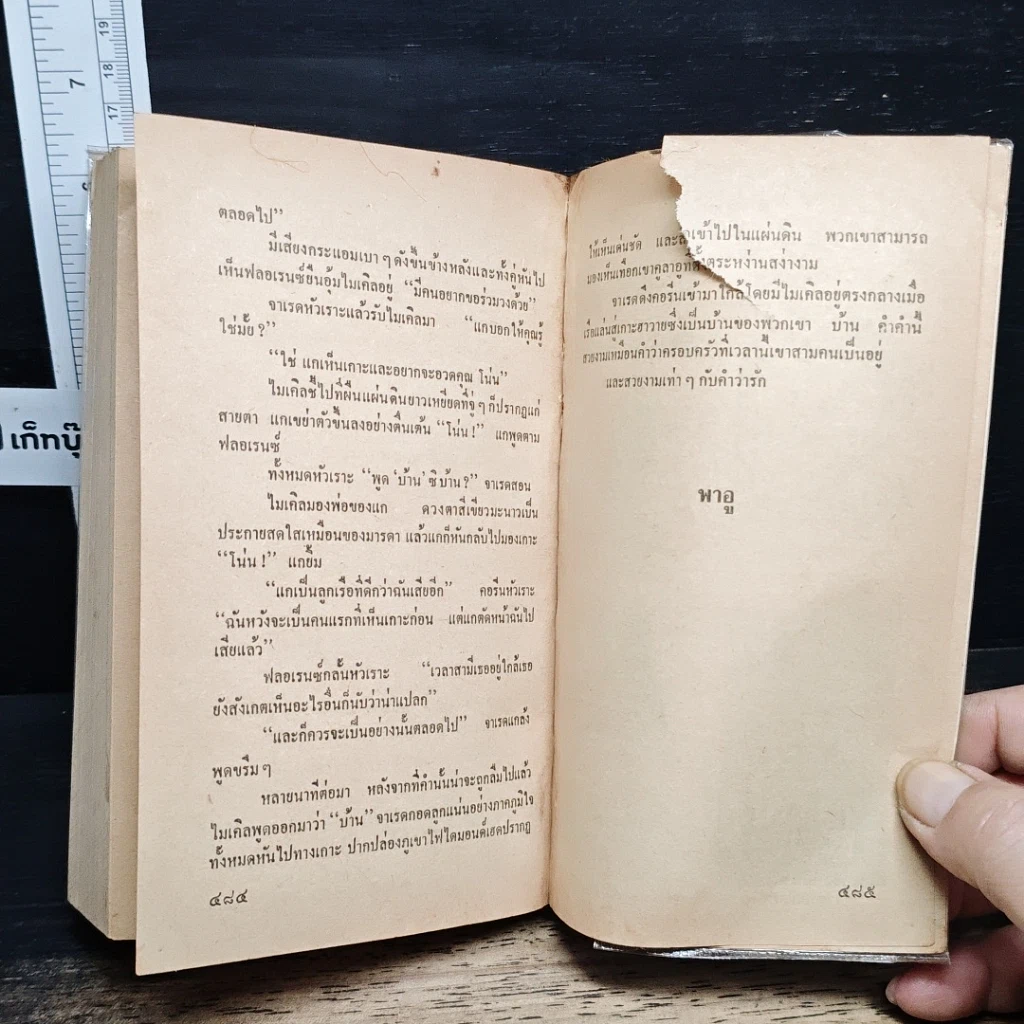 ตลอดไป”
มีเสียงกระแอมเบา ๆ ดังขึ้นข้างหลังและทั้งคู่หันไป
เห็นฟลอเรนซ์ยืนอุ้มไมเคิลอยู่ “มีคนอยากขอร่วมวงด้วย”
จาเรดหัวเราะแล้วรับไมเคิลมา “แกบอกให้คุณรู้
ใช่มั้ย ?”
“ใช่ แกเห็นเกาะและอยากจะอวดคุณ โน่น”
ไมเคิลชี้ไปที่ผืนแผ่นดินยาวเหยียดที่จู่ ๆ ก็ปรากฏแก่
สายตา แกเขย่าตัวขึ้นลงอย่างตื่นเต้น “โน่น !” แกพูดตาม
ฟลอเรนซ์
ทั้งหมดหัวเราะ “พูด ‘บ้าน’ ซิ บ้าน ?” จาเรดสอน
ไมเคิลมองพ่อของแก ดวงตาสีเขียวมะนาวเป็น
ประกายสดใสเหมือนของมารดา แล้วแกก็หันกลับไปมองเกาะ
“โน่น !” แกยิ้ม
“แกเป็นลูกเรือที่ดีกว่าฉันเสียอีก” คอรีนหัวเราะ
“ฉันหวังจะเป็นคนแรกที่เห็นเกาะก่อน แต่แกตัดหน้าฉันไป
เสียแล้ว”
ฟลอเรนซ์กลั้นหัวเราะ “เวลาสามีเธออยู่ใกล้เธอ
ยังสังเกตเห็นอะไรอื่นก็นับว่าน่าแปลก”
“และก็ควรจะเป็นอย่างนั้นตลอดไป” จาเรดแกล้ง
พูดขรึม ๆ
หลายนาทีต่อมา หลังจากที่คำนั้นน่าจะถูกลืมไปแล้ว
ไมเคิลพูดออกมาว่า “บ้าน” จาเรดกอดลูกแน่นอย่างภาคภูมิใจ
ทั้งหมดหันไปทางเกาะ ปากปล่องภูเขาไฟไดมอนด์เฮดปรากฏ
๔๘๔
ให้เห็นเด่นชัด และ เข้าไปในแผ่นดิน พวกเขาสามารถ
มองเห็นเทือกเขาคูลาอูที่ตั้งตระหง่านสง่างาม
จาเรดดึงคอรีนเข้ามาใกล้โดยมีไมเคิลอยู่ตรงกลางเมื่อ
เรือแล่นสู่เกาะฮาวายซึ่งเป็นบ้านของพวกเขา บ้าน คำคำนี้
สวยงามเหมือนคำว่าครอบครัวที่เวลานี้เขาสามคนเป็นอยู่
และสวยงามเท่า ๆ กับคำว่ารัก
พาอู
๔๘๕
เก็ทบุ๊
7
19
18
17